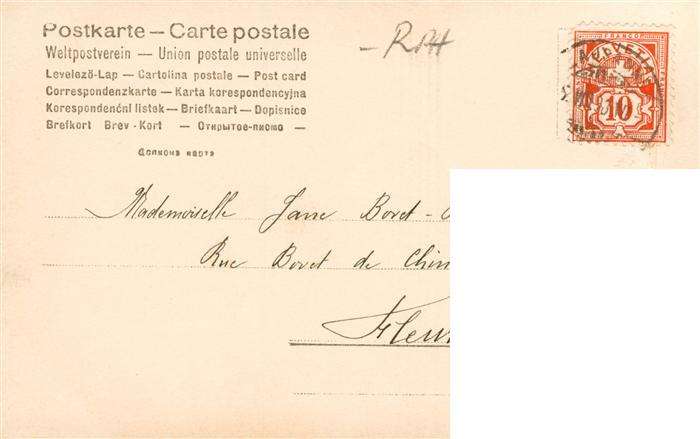 Postkarte — Carte postale
Weltpostverein — Union postale universelle
Levelező-Lap — Cartolina postale — Post card
Correspondenzkarte — Karta korespondencyjna
Korespondenční lístek — Briefkaart — Dopisnice
Brefkort Brev-Kort — Открытое-письмо —
Дописна карта
RAH
FRANCO
10
Mademoiselle Jane Bovet -
Rue Bovet de